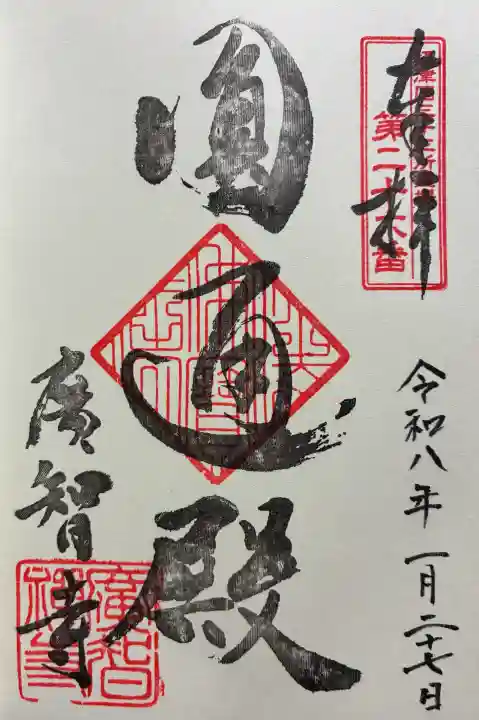 奉拝
令和八年 一月二十七日
圓通殿
廣智寺
廣智禅寺